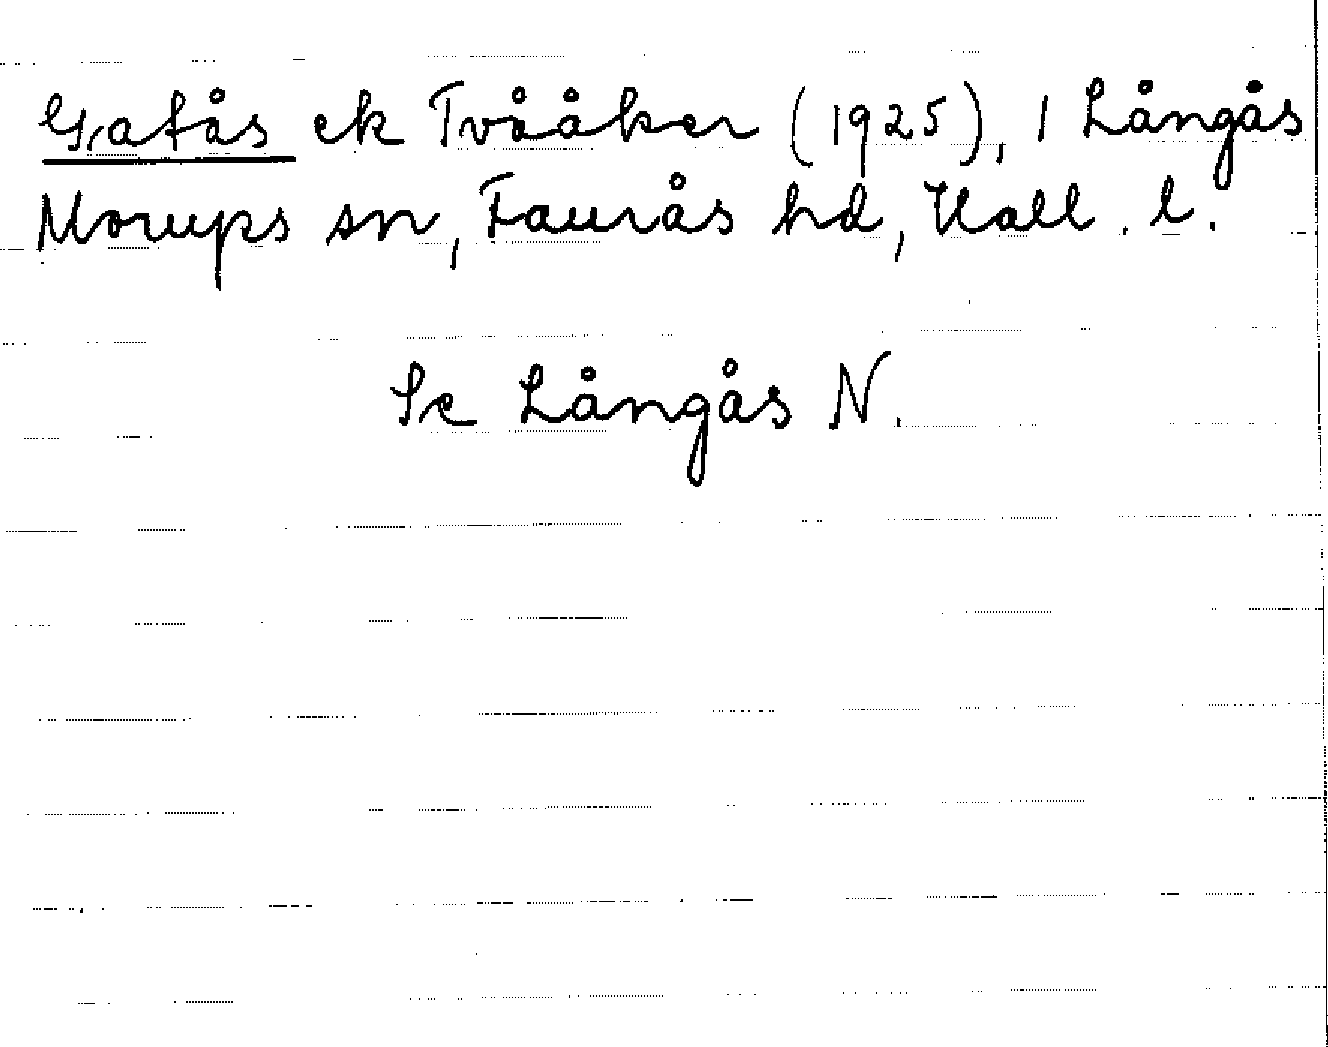 Gatås ek Tvååker (1925), 1 Långås
Morups sn, Faurås hd, Hall. l.
Se Långås N.